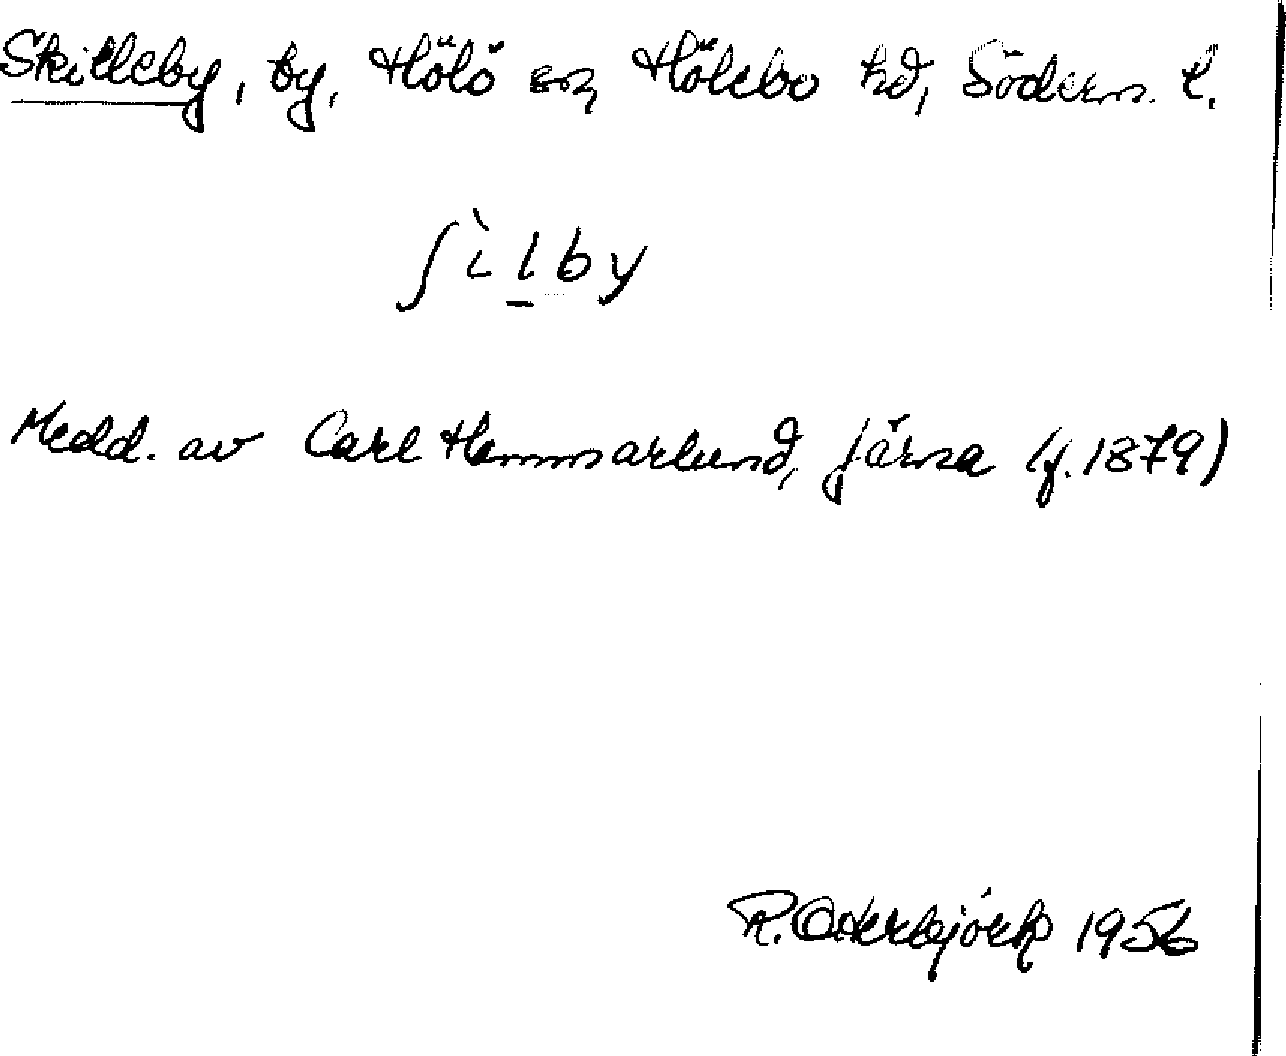 Skilleby, by, Hölö sn, Hölebo hd, Söderm. l.
ʃìlby
Medd. av Carl Hammarlund, Järna (f. 1879)
R. Otterbjörk 1956